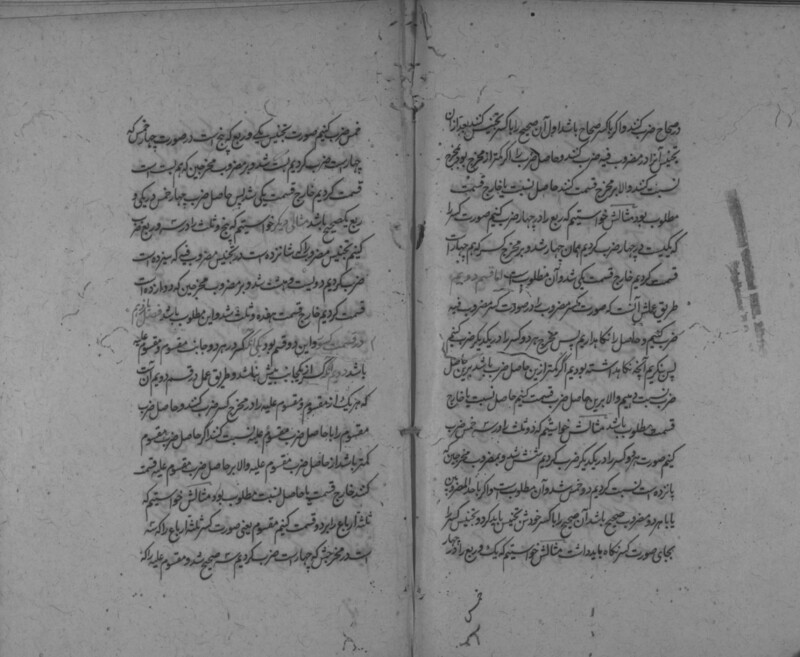 در صحاح ضرب کنند و اگر با کسر صحاح باشد اول آن صحیح را با کسر تجنیس کنند بعد از آن
تجنیس آنرا در مضروب فیه ضرب کنند و حاصل ضرب را اگر کمتر از مخرج بود بمخرج
نسبت کنند و الا بر مخرج قسمت کنند حاصل نسبت یا خارج قسمت
مطلوب بود مثالش خواستیم که ربع را در چهار ضرب کنیم صورت کسر را
که یکیست در چهار ضرب کردیم همان چهار شد و بر مخرج که هم چهار است
قسمت کردیم خارج قسمت یکی شد و آن مطلوبست اما قسم دویم
طریق عملش آنست که صورت کسر مضروب را در صورت کسر مضروب فیه
ضرب کنیم و حاصل را نگاه داریم پس مخرج هر دو کسر را در یکدیگر ضرب کنیم
پس بنگریم آنچه نگاه داشته بودیم اگر کمتر ازین حاصل ضرب باشد بدین حاصل
ضرب نسبت دهیم و الا برین حاصل ضرب قسمت کنیم حاصل نسبت یا خارج
قسمت مطلوب باشد مثالش خواستیم که دو ثلث را در سه خمس ضرب
کنیم صورت هر دو کسر را در یکدیگر ضرب کردیم شش شد و بمضروب مخرجین که
پانزده است نسبت کردیم دو خمس شد و آن مطلوب است و اگر با احد المضروبین
یا با هر دو مضروب صحیح باشد آن صحیح را با کسر خودش تجنیس باید کرد و تجنیس کسر را
بجای صورت کسر نگاه باید داشت مثالش خواستیم که یک و ربع را در چهار
خمس
خمس ضرب کنیم صورت تجنیس یک و ربع که پنج است در صورت چهار خمس که
چهار است ضرب کردیم بیست شد و بر مضروب مخرجین که هم بیست است
قسمت کردیم خارج قسمت یکی شد پس حاصل ضرب چهار خمس در یکی و
ربع یک صحیح باشد مثالی دیگر خواستیم که پنج و ثلث را در سه و ربع ضرب
کنیم تجنیس مضروب را که شانزده است در تجنیس مضروب فیه که سیزده است
ضرب کردیم دویست و هشت شد و بر مضروب مخرجین که دوازده است
قسمت کردیم خارج قسمت هفده و ثلث شد و این مطلوب باشد
در قسمت کسور و این دو قسم بود یکی آنکه کسر در هر دو جانب مقسوم و مقسوم علیه
باشد دویم آنکه از یکجانب بیش نباشد و طریق عمل در قسم دویم آنست
که هر یک از مقسوم و مقسوم علیه را در مخرج کسر ضرب کنند و حاصل ضرب
مقسوم را با حاصل ضرب مقسوم علیه نسبت کنند اگر حاصل ضرب مقسوم
کمتر باشد از حاصل ضرب مقسوم علیه و الا بر حاصل ضرب مقسوم علیه قسمت
کنند خارج قسمت یا حاصل نسبت مطلوب بود مثالش خواستیم که
ثلثه ارباع را بر دو قسمت کنیم مقسوم یعنی صورت کسر ثلثه ارباع را که سه
است در مخرجش که چهار است ضرب کردیم سه صحیح شد و مقسوم علیه را که